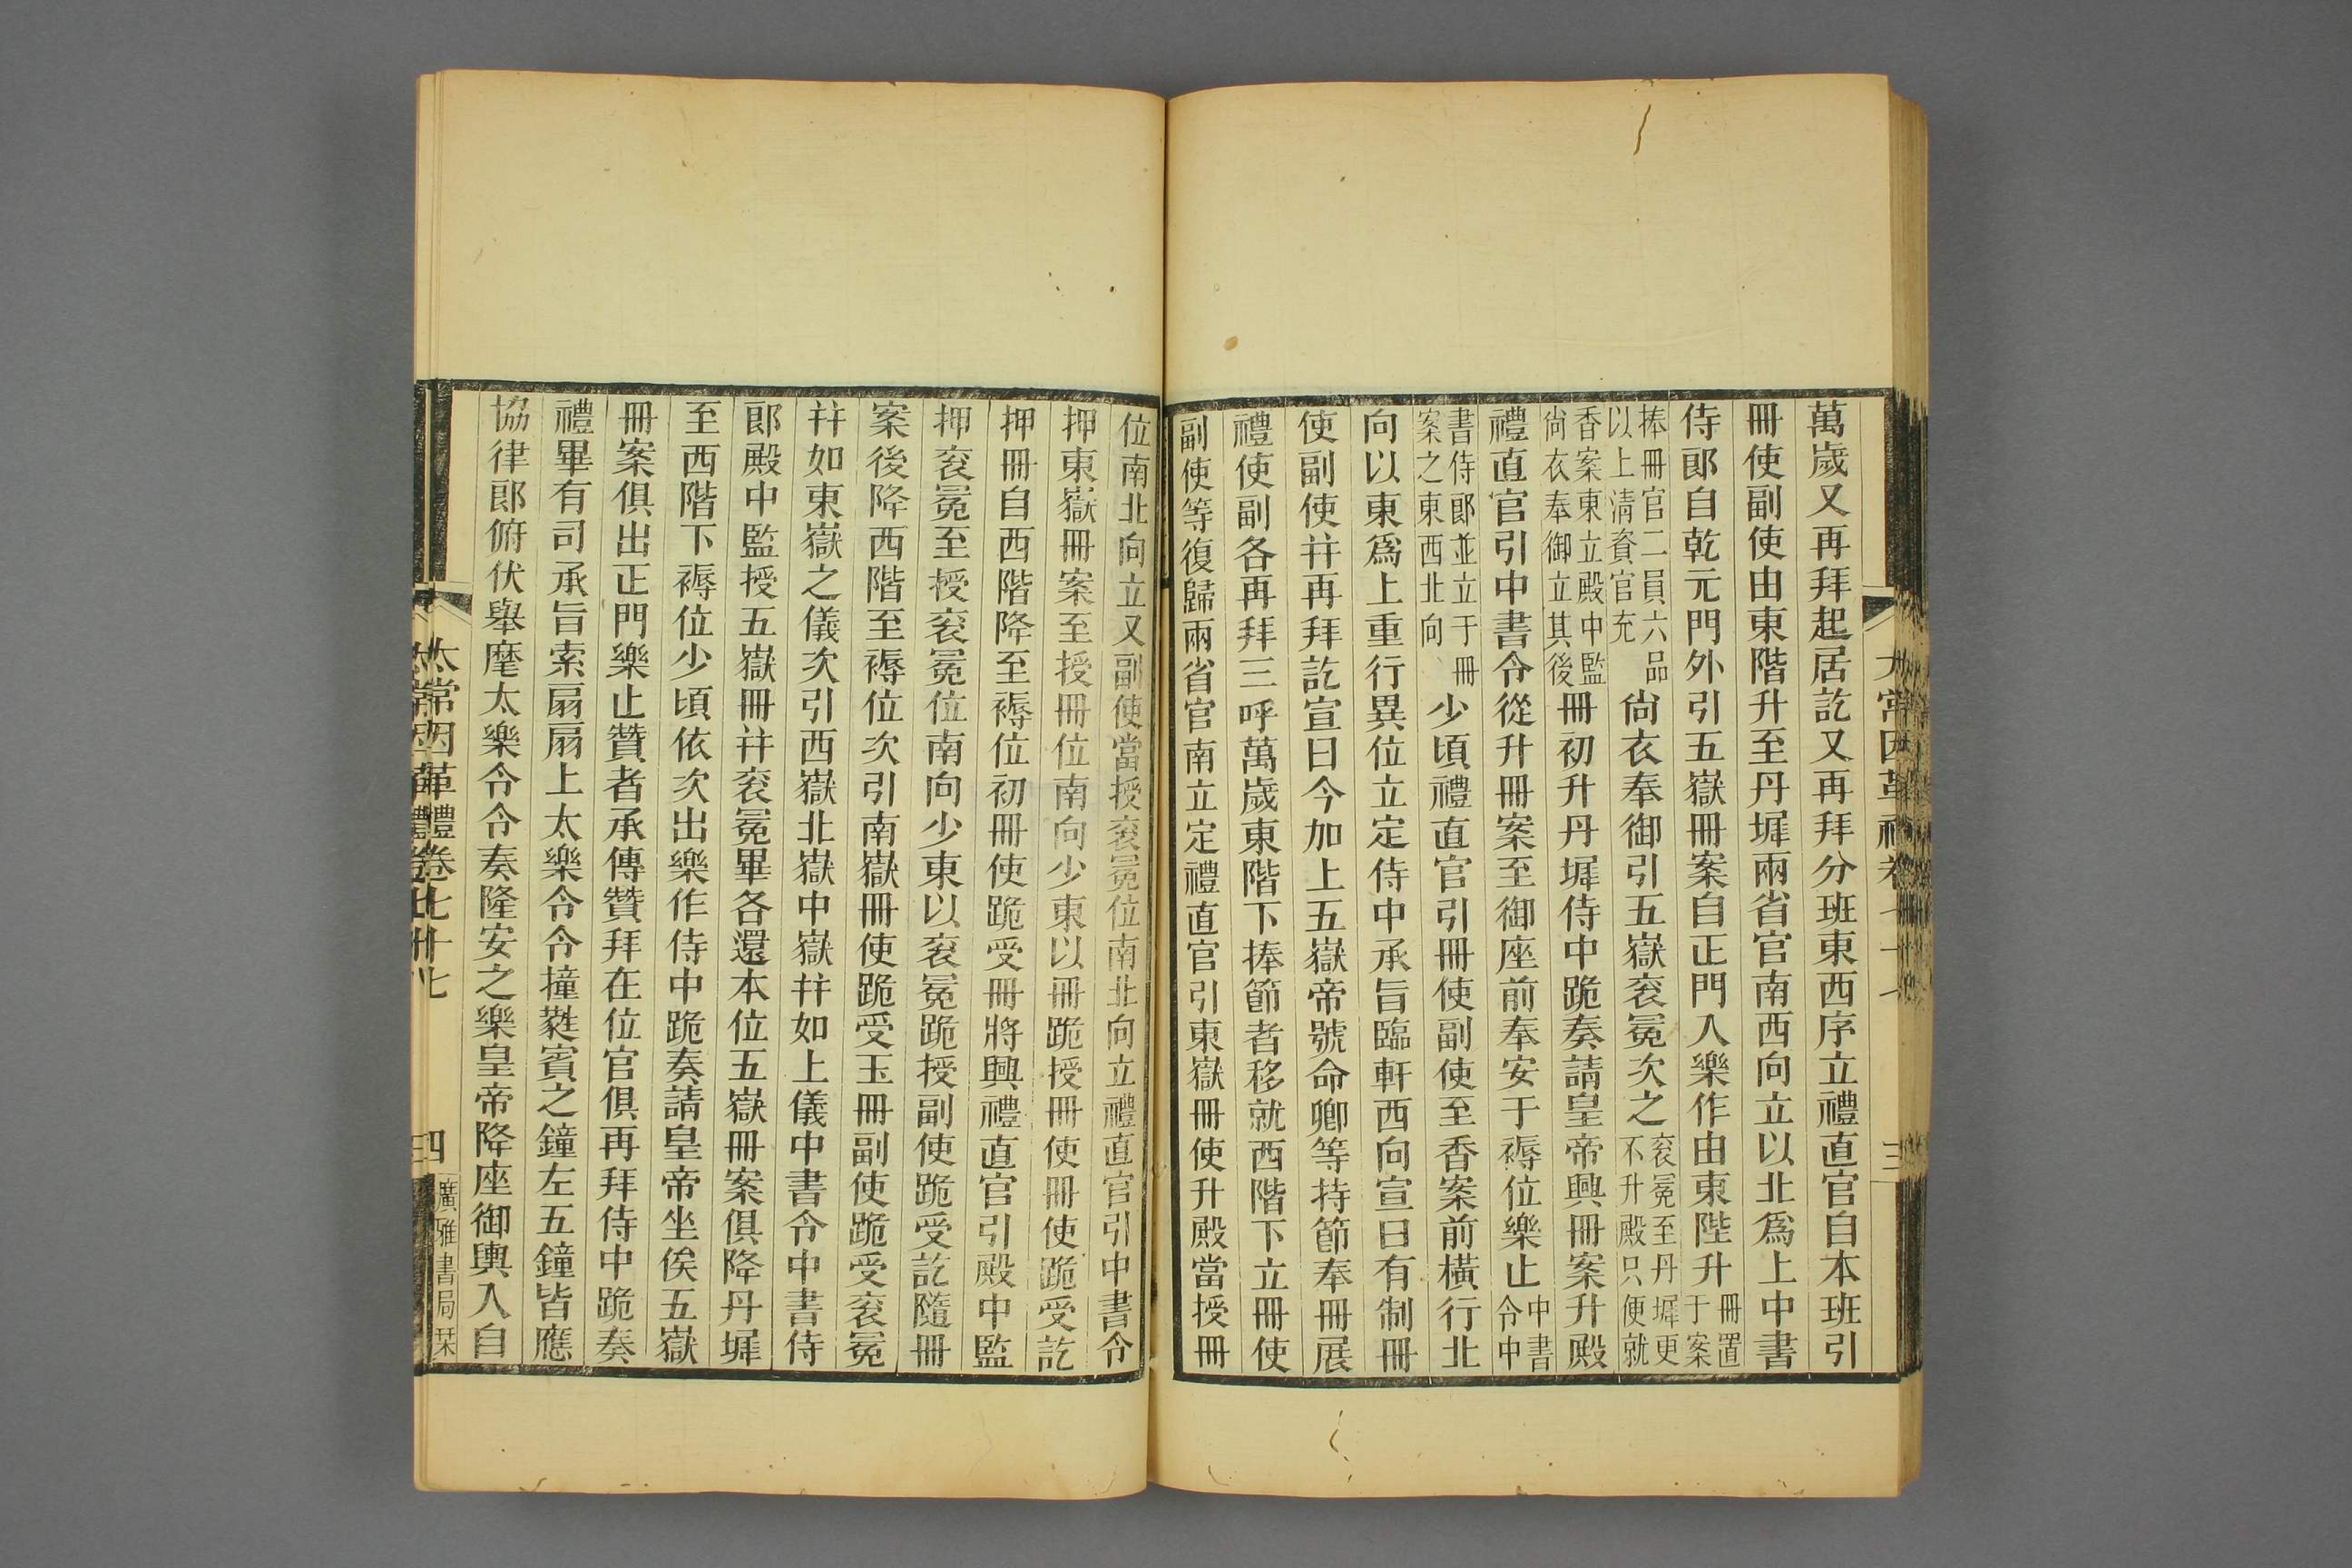 萬歲又再拜起居訖又再拜分班東西序立禮直官自本班引
冊使副使由東階升至丹墀兩省官南西向立以北爲上中書
侍郞自乾元門外引五嶽冊案自正門入樂作由東陛升冊置于案
捧冊官二員六品以上淸資官充尙衣奉御引五嶽袞冕次之袞冕至丹墀更不升殿只便就
香案東立殿中監尙衣奉御立其後冊初升丹墀侍中跪奏請皇帝興冊案升殿
禮直官引中書令從升冊案至御座前奉安于褥位樂止中書令中
書侍郞並立于冊案之東西北向少頃禮直官引冊使副使至香案前橫行北
向以東爲上重行異位立定侍中承旨臨軒西向宣曰有制冊
使副使幷再拜訖宣曰今加上五嶽帝號命卿等持節奉冊展
禮使副各再拜三呼萬歲東階下捧節者移就西階下立冊使
副使等復歸兩省官南立定禮直官引東嶽冊使升殿當授冊
太常因革禮卷七十七
三
位南北向立又副使當授袞冕位南北向立禮直官引中書令
押東嶽冊案至授冊位南向少東以冊跪授冊使冊使跪受訖
押冊自西階降至褥位初冊使跪受冊將興禮直官引殿中監
押袞冕至授袞冕位南向少東以袞冕跪授副使跪受訖隨冊
案後降西階至褥位次引南嶽冊使跪受玉冊副使跪受袞冕
幷如東嶽之儀次引西嶽北嶽中嶽幷如上儀中書令中書侍
郞殿中監授五嶽冊幷袞冕畢各還本位五嶽冊案俱降丹墀
至西階下褥位少頃依次出樂作侍中跪奏請皇帝坐俟五嶽
冊案俱出正門樂止贊者承傳贊拜在位官俱再拜侍中跪奏
禮畢有司承旨索扇扇上太樂令令撞蕤賓之鐘左五鐘皆應
協律郞俯伏舉麾太樂令令奏隆安之樂皇帝降座御輿入自
太常因革禮卷七十七
四
廣雅書局栞